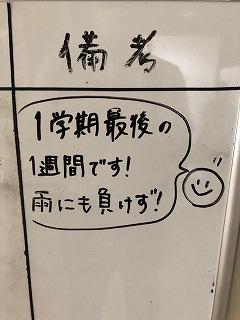 備考
1学期最後の
1週間です!
雨にも負けず!